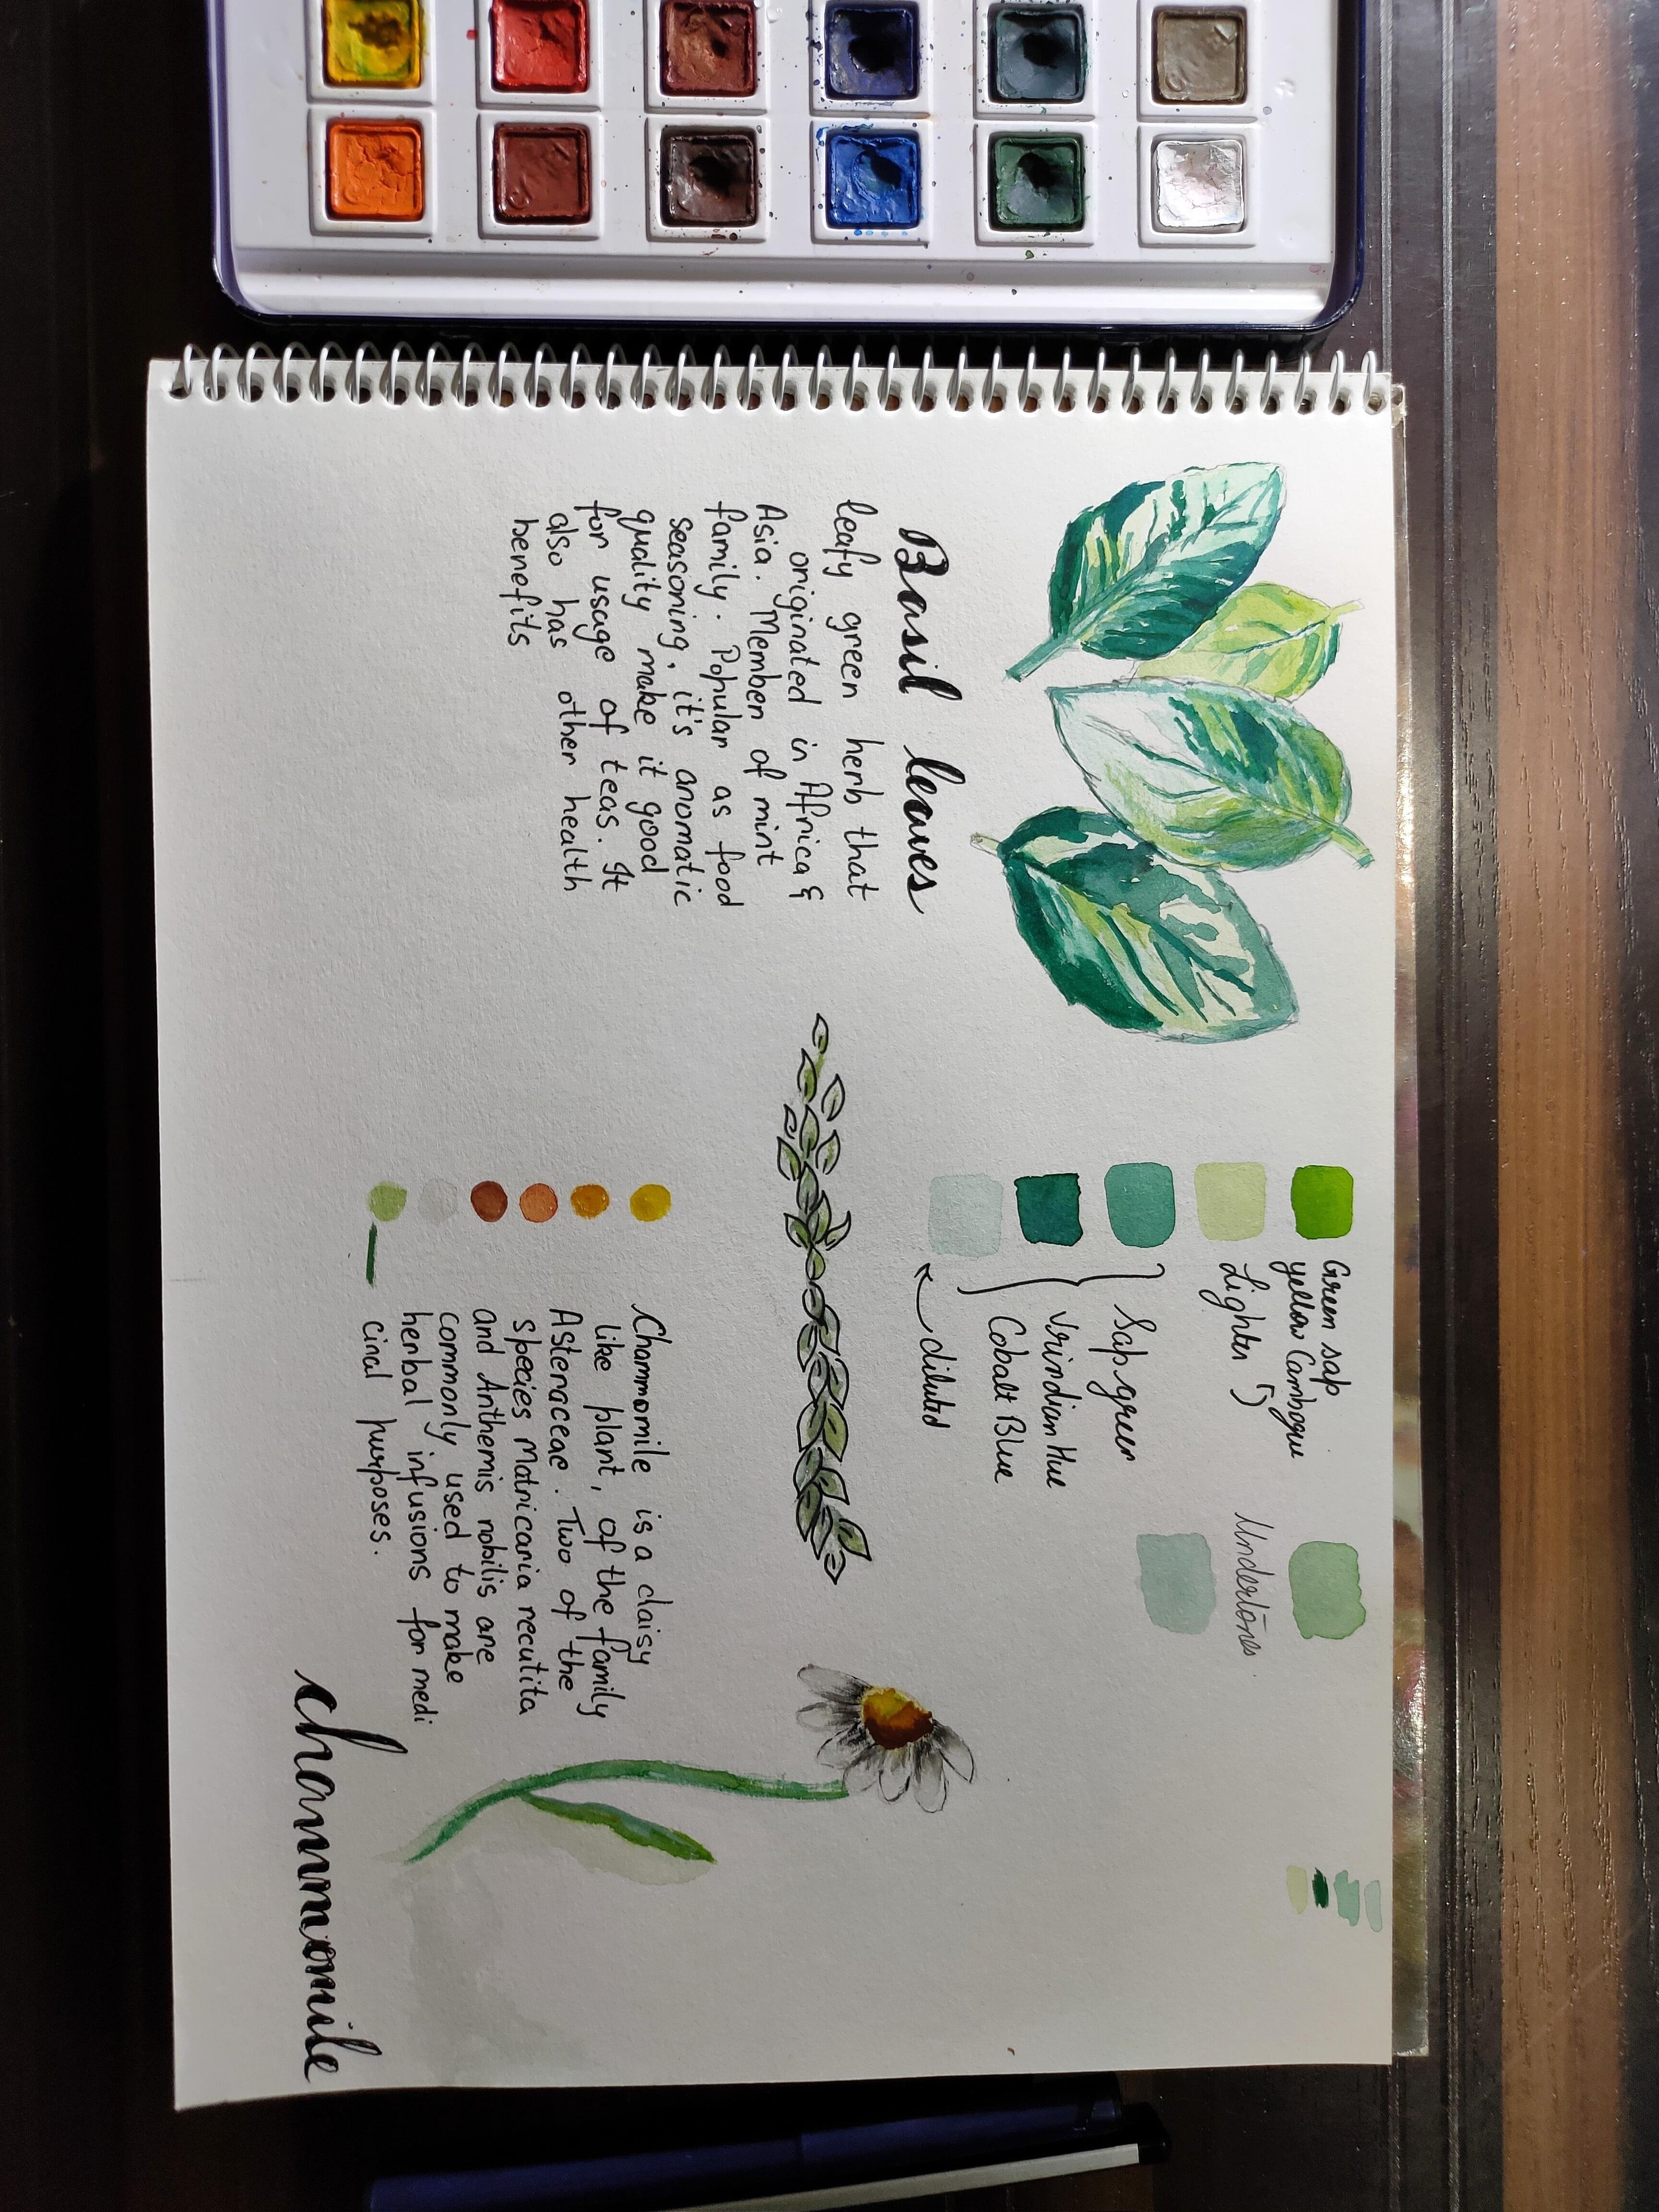 Green sap
yellow Cambogue
Lighter
Sap green
Virindian Hue
Cobalt Blue
diluted
Undertones.
Basil leaves
leafy green herb that
originated in Africa &
Asia. Member of mint
family. Popular as food
seasoning, it's aromatic
quality make it good
for usage of teas. It
also has other health
benefits
Chammomile is a daisy
like plant, of the family
Asteraceae. Two of the
species Matricaria recutita
and Anthemis nobilis are
commonly used to make
herbal infusions for medi
cinal purposes.
chammomile